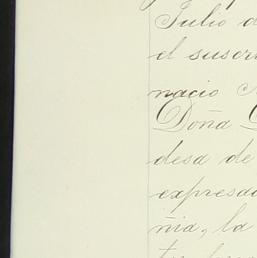 Julio d
el suscri
nacio
Doña
desa de
expresad
ñia, la